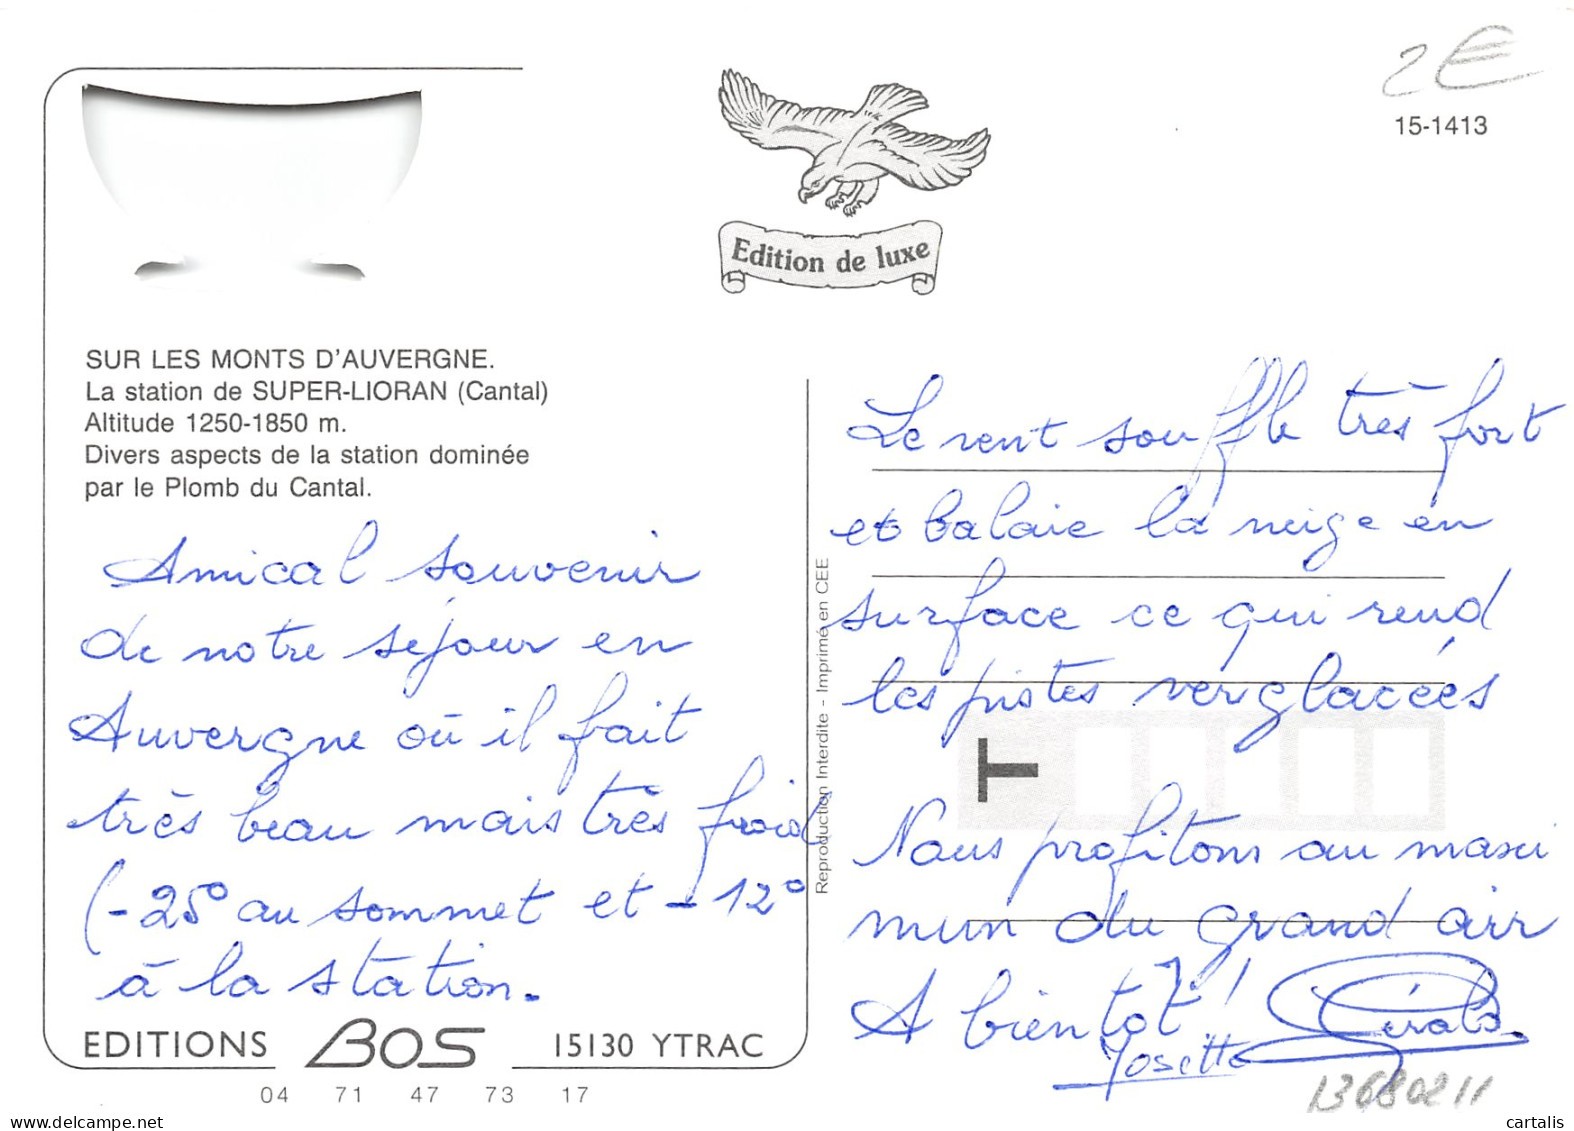 2€
15-1413
Edition de luxe
SUR LES MONTS D'AUVERGNE.
La station de SUPER-LIORAN (Cantal)
Altitude 1250-1850 m.
Divers aspects de la station dominée
par le Plomb du Cantal.
Amical souvenir
de notre séjour en
Auvergne où il fait
très beau mais très froid
(-25° au sommet et -12°
à la station.
EDITIONS BOS 15130 YTRAC
04 71 47 73 17
Reproduction Interdite - Imprimé en CEE
Le vent souffle très fort
et balaie la neige en
surface ce qui rend
les pistes verglacées
T
Nous profitons au maxi
mum du grand air
A bientôt !
Josette Gérald
13680211
www.delcampe.net
cartalis